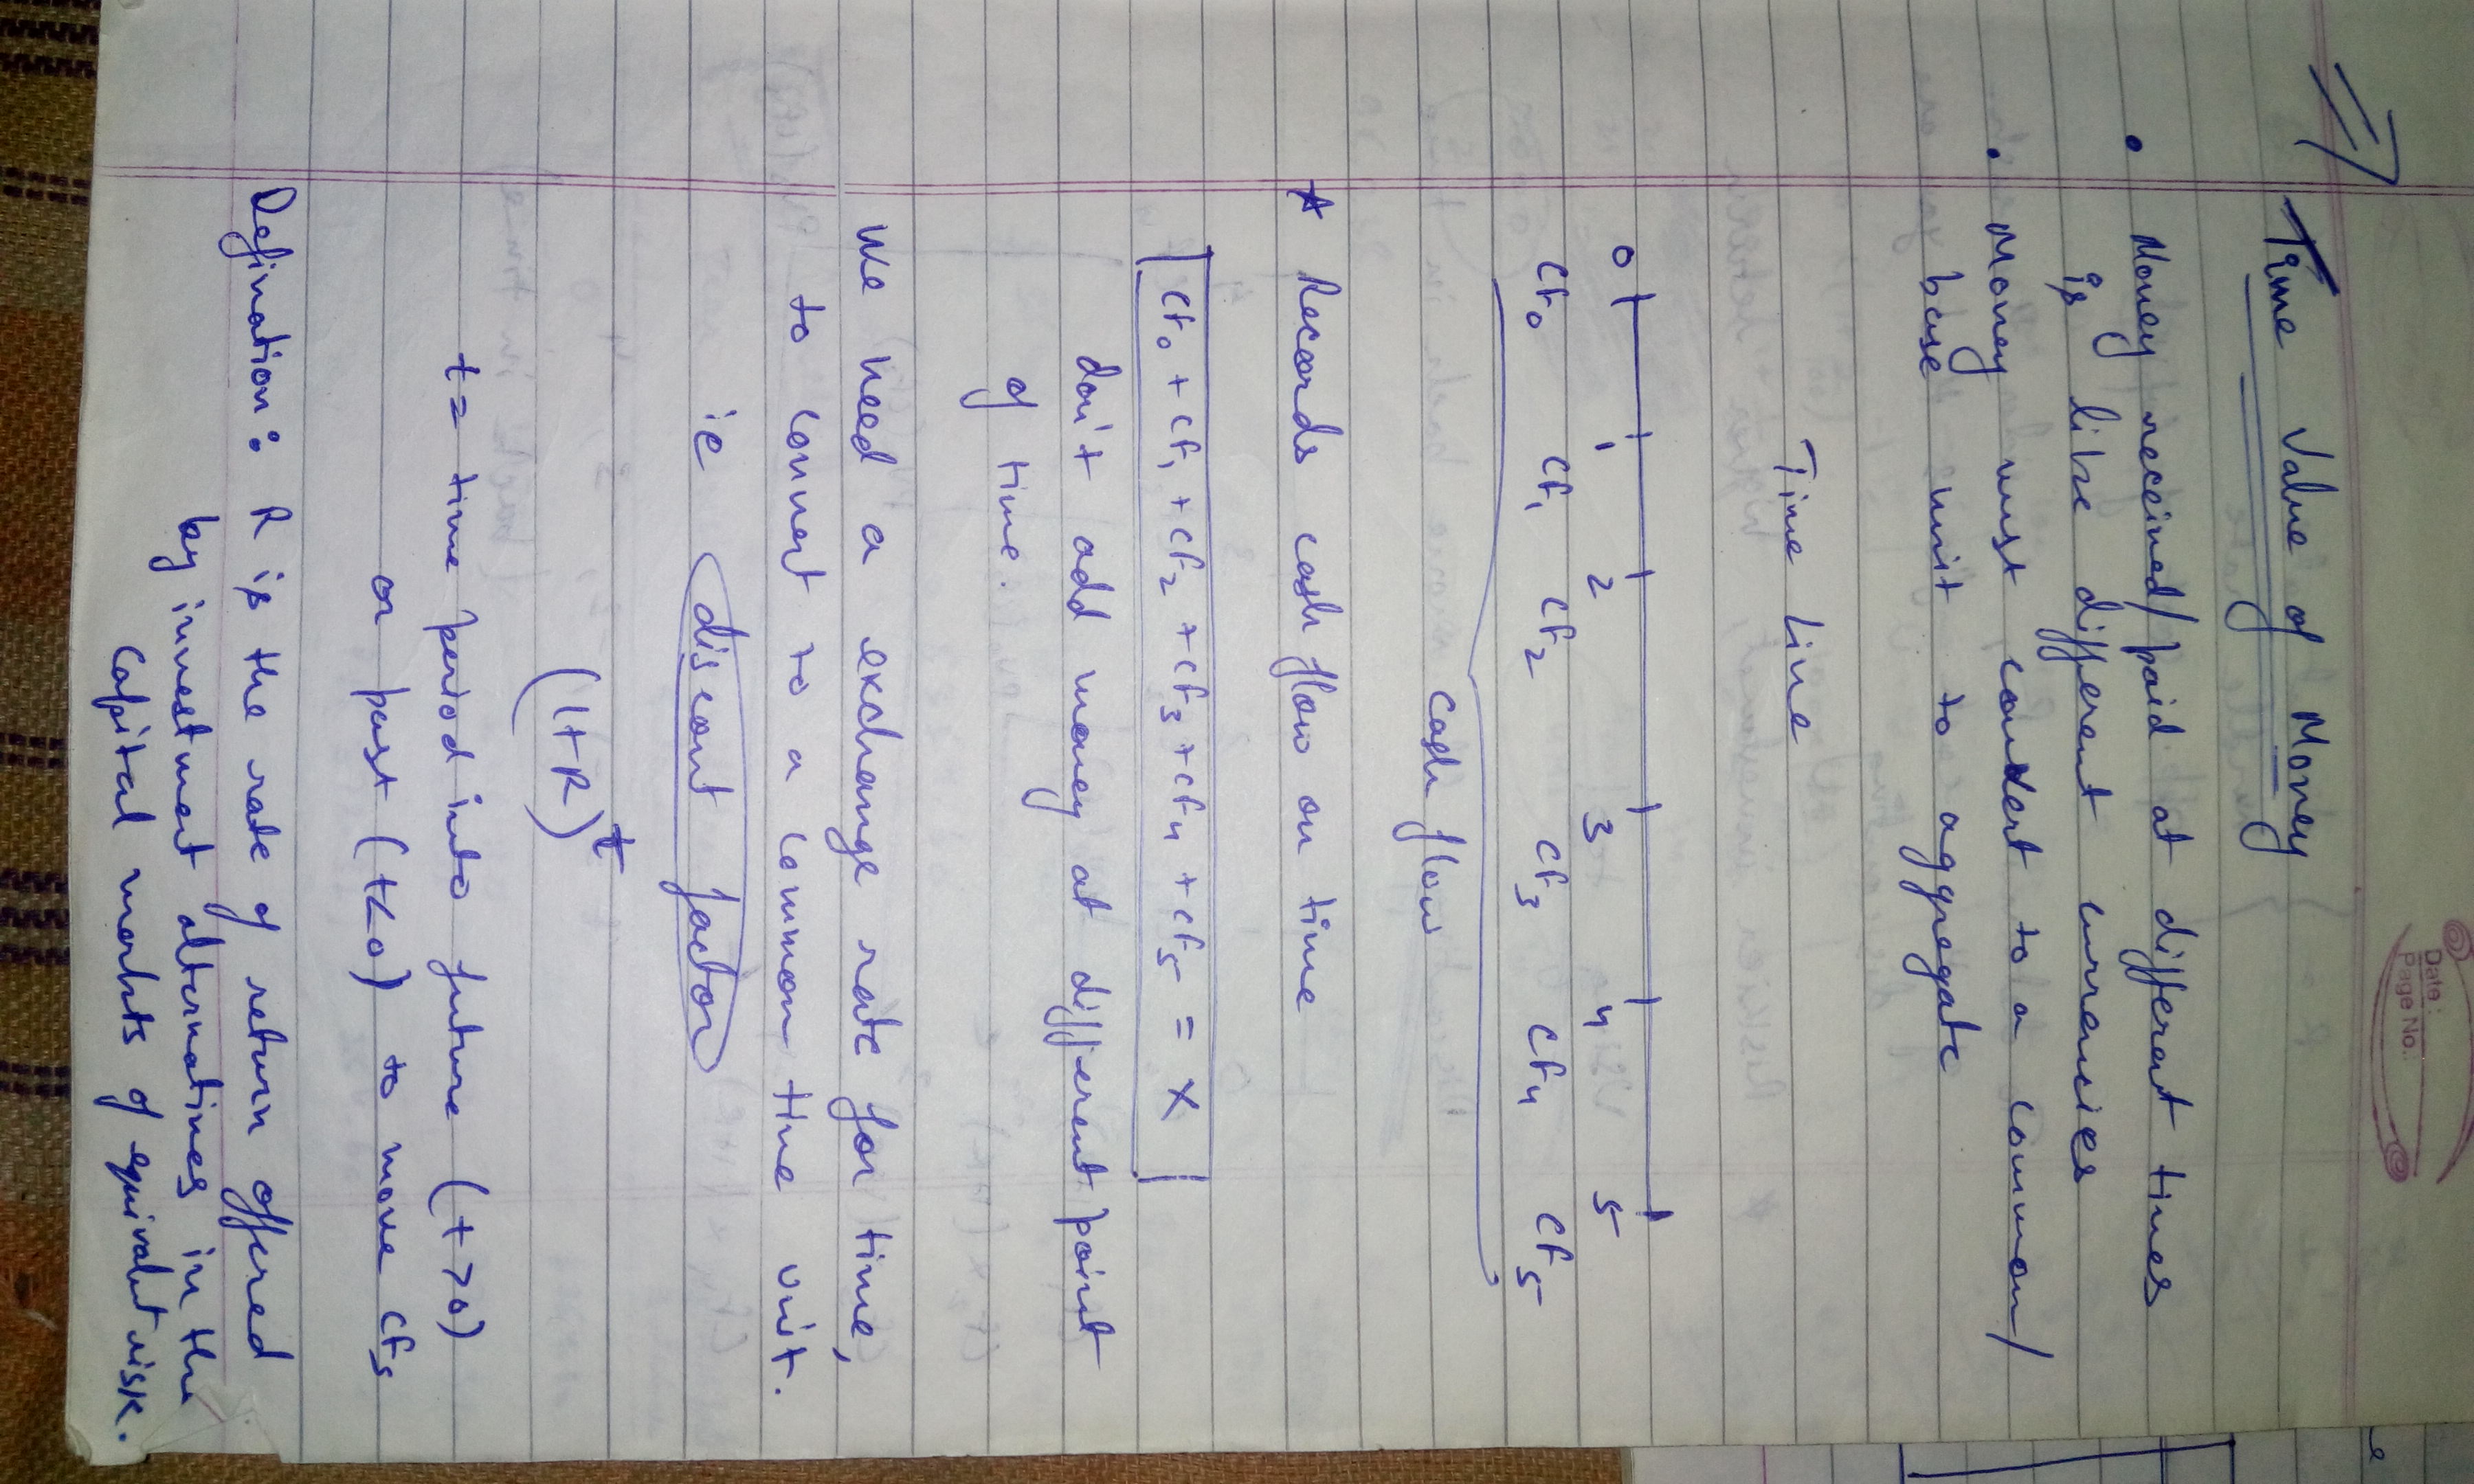 Date:
Page No.:
⇒ Time Value of Money
• Money received/paid at different times
is like different currencies
• Money must convert to a common/
base unit to aggregate
Time Line
0 1 2 3 4 5
CF0 CF1 CF2 CF3 CF4 CF5
Cash flow
* Records cash flow on time
CF0 + CF1 + CF2 + CF3 + CF4 + CF5 = X
don't add money at different point
of time.
We need a exchange rate for time,
to convert to a common time unit.
ie discount factor
(1+R)^t
t = time period into future (t>0)
or past (t<0) to move CFs
Defination: R is the rate of return offered
by investment alternatives in the
capital markets of equivalent risk.